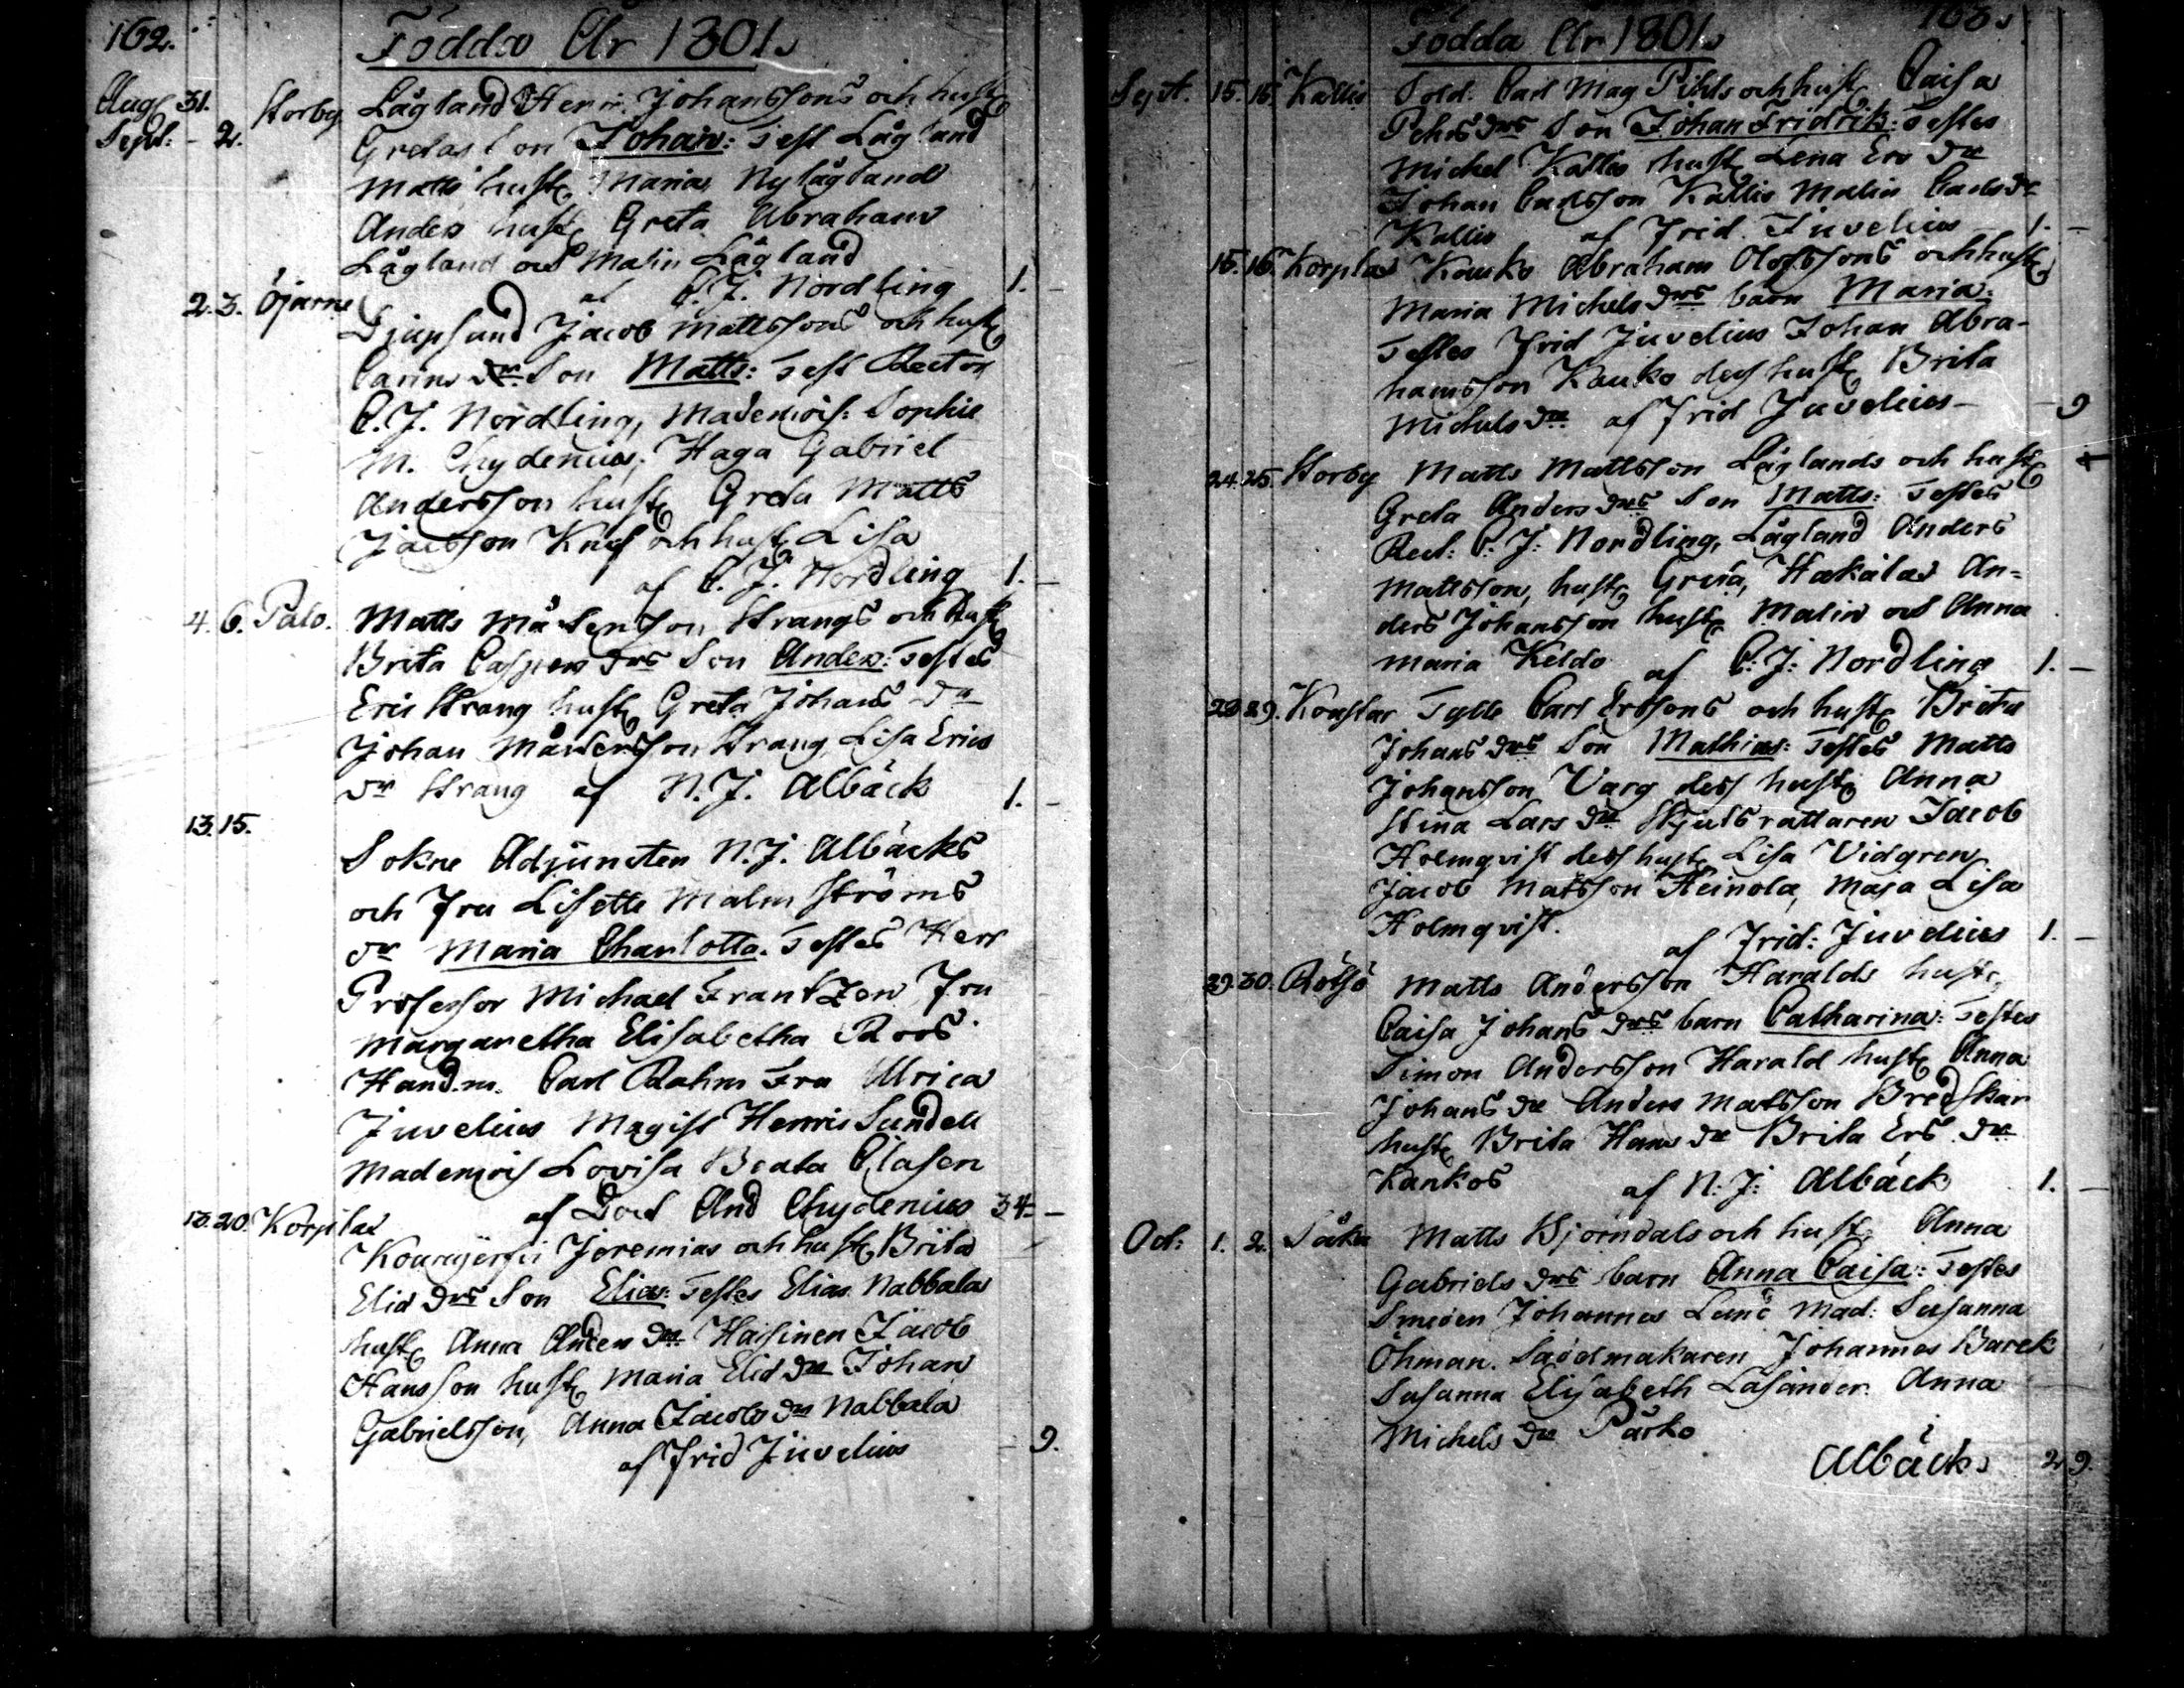 162.
Födda År 1801.
Aug 31. Storby Lågland Henr. Johanssons och hust
Sept: - 2. Gretas Son Johan: Test Lågland
Matts hust Maria, Nylågland
Anders hust Greta Abrahams
Lågland och Malin Lågland
af C. J. Nordling 1. -
2. 3. Öjarne Djupsund Jacob Mattssons och hust
Carins Son Matts: Test Rector
C. J. Nordling, Mademois: Sophie
M. Chydenius, Haga Gabriel
Andersson hust Greta Matts
Jacobson Knif och hust Lisa
af C. J. Nordling 1. -
4. 6. Palo. Matts Mårtenson Strangs och Hust
Brita Caspers drs Son Anders: Testes
Eric Strang hust Greta Johans dr
Johan Mårtensson Strang, Lisa Erics
dr Strang af N. J. Albäck 1. -
13. 15.
Sokne Adjuncten N. J. Albäcks
och Fru Lisette Malmströms
dr Maria Charlotta. Testes Herr
Professor Michael Frantzen, Fru
Margaretha Elisabetha Roos.
Hand.m. Carl Rahm Fru Ulrica
Juvelius Magist Henric Sundell
Mademois Lovisa Beata Clasen
af Doct And Chydenius 34 -
13. 20. Korplax
Jeremias och hust Brita
Elid drs Son Elias: Testes Elias Nabbala
hust Anna Anders dr Haisinen Jacob
Hansson hust Maria Elid dr Johan
Gabrielsson, Anna Jacobs dr Nabbala
af Frid Juvelius - 9.
163.
Födda År 1801.
Sept. 15. 16. Kallis Sold. Carl Mag Pihls och hust Caisa
Pehrs drs Son Johan Fridrik: Testes
Michel Kallis hust Lena Ers dr
Johan Carlsson Kallis Malin Carls dr
Kallis af Frid. Juvelius 1. -
15. 16. Korplax Kauko Abraham Olofssons och hust
Maria Michels drs barn Maria:
Testes Frid Juvelius Johan Abra-
hamsson Kauko dess hust Brita
Michels dr af Frid Juvelius - - 9
24. 25. Storby Matts Mattsson Låglands och hust
Greta Anders drs Son Matts: Testes
Rect: C. J: Nordling, Lågland Anders
Mattsson, hust Greta, Hakalax An=
ders Johansson hust Malin och Anna
Maria Keldo af C: J: Nordling 1. -
29. Tylle Carl Ersons och hust Brita
Johans drs Son Mathias: Testes Matts
Johansson Varg dess hust Anna
Stina Lars dr Skjutsrattaren Jacob
Holmqvist dess hust Lisa Vidgren
Jacob Matsson Heinola, Maja Lisa
Holmqvist.
af Frid: Juvelius 1. -
29. 30. Rötsö Matts Andersson Haralds hust
Caisa Johans drs barn Catharina: Testes
Simon Andersson Harald hust Anna
Johans dr Anders Matsson Bredskar
hust Brita Hans dr Brita Ers dr
Kankos af N: J: Albäck 1. -
Oct: 1. 2. Såka Matts Bjorndals och hust Anna
Gabriels drs barn Anna Caisa: Testes
Smeden Johannes Mad: Susanna
Öhman. Sadelmakaren Johannes Barck
Susanna Elisabeth Lasander. Anna
Michels dr Parko
Albäck 2 9.